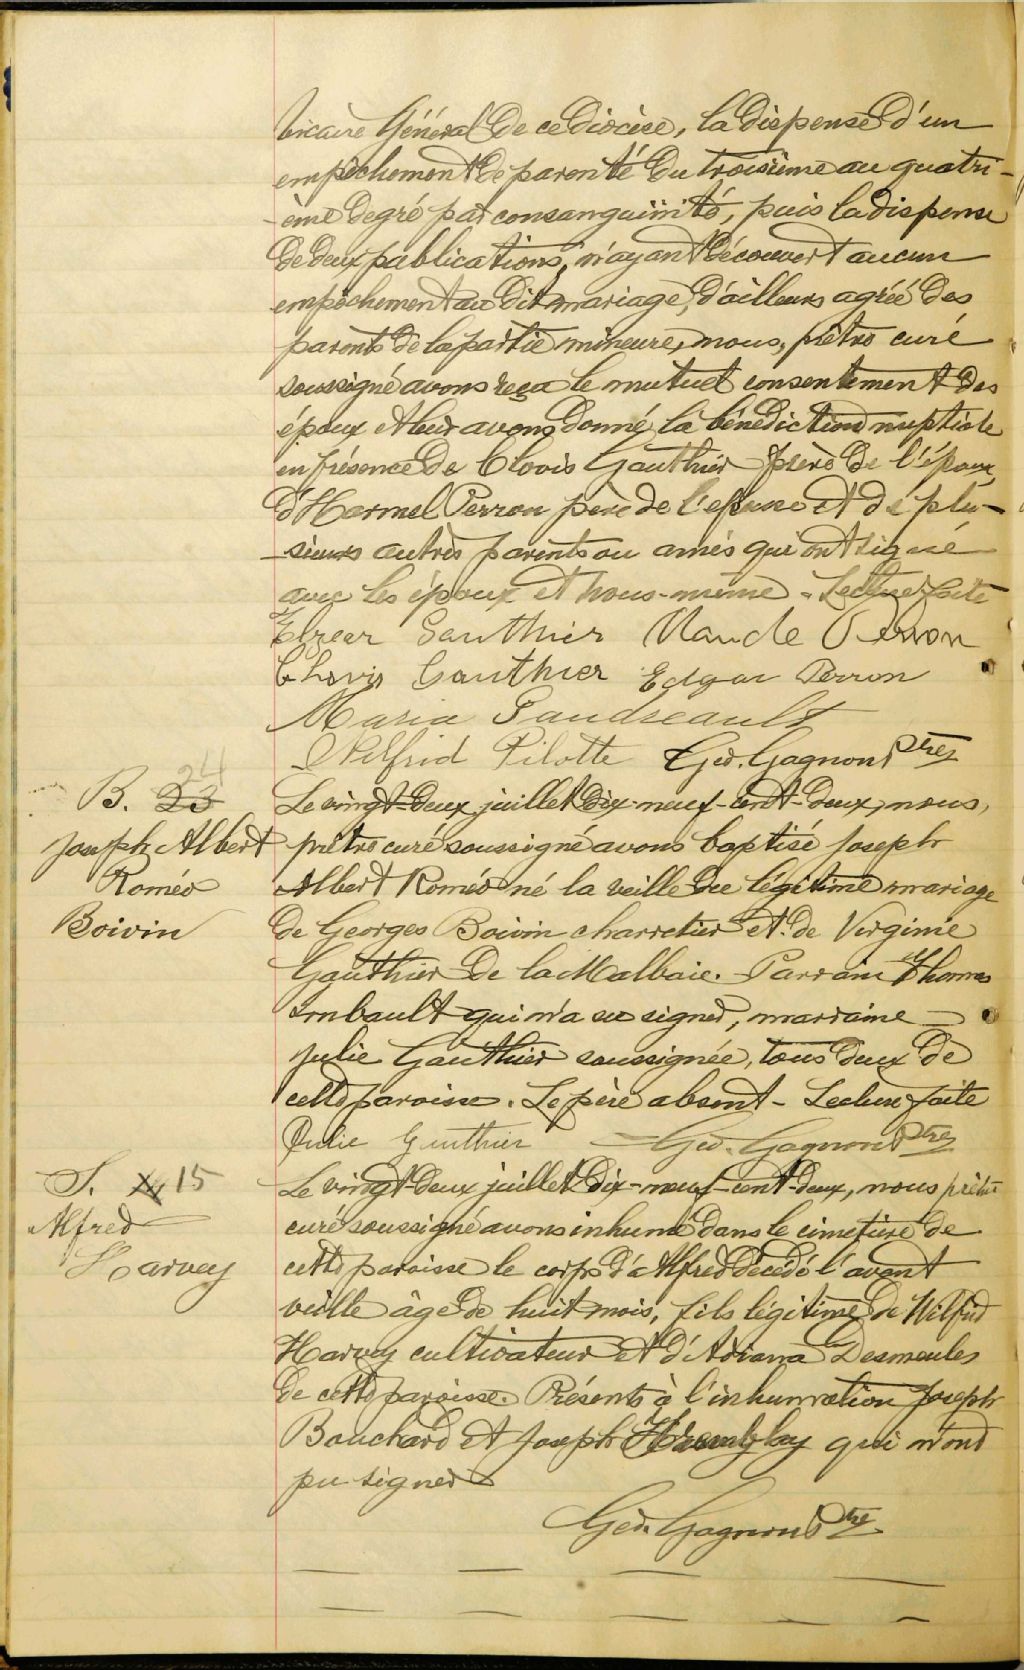 Vicaire Général de ce diocèse, la dispense d'un
empêchement de parenté du troisième au quatri-
-ème degré par consanguinité, puis la dispense
de deux publications, n'ayant découvert aucun
empêchement au dit mariage, d'ailleurs agréé des
parents de la partie mineure, nous, prêtre curé
soussigné avons reçu le mutuel consentement des
époux et leur avons donné la bénédiction nuptiale
en présence de Clovis Gauthier frère de l'époux,
d'Hormel Perron père de l'épouse et de plu-
-sieurs autres parents ou amis qui ont signé
avec les époux et nous-même - Lecture faite
Elzear Gauthier Maude Perron
Clovis Gauthier Edgar Perron
Maria Gaudreault
Wilfrid Pilotte Géd. Gagnon Ptre
B. 23 24
Joseph Albert
Roméo
Boivin
Le vingt-deux juillet dix-neuf-cent-deux, nous,
prêtre curé soussigné avons baptisé Joseph
Albert Roméo né la veille du légitime mariage
de Georges Boivin charretier et de Virginie
Gauthier de la Malbaie. Parrain Thomas
Imbault qui n'a su signer, marraine
Julie Gauthier soussignée, tous deux de
cette paroisse. Le père absent - Lecture faite
Julie Gauthier Géd. Gagnon Ptre
S. 15
Alfred
Harvey
Le vingt-deux juillet dix-neuf-cent-deux, nous prêtre
curé soussigné avons inhumé dans le cimetière de
cette paroisse le corps d'Alfred décédé l'avant
veille âgé de huit mois, fils légitime de Wilfrid
Harvey cultivateur et d'Adriana Desmeules
de cette paroisse. Présents à l'inhumation Joseph
Bouchard et Joseph Tremblay qui n'ont
pu signer
Géd. Gagnon Ptre